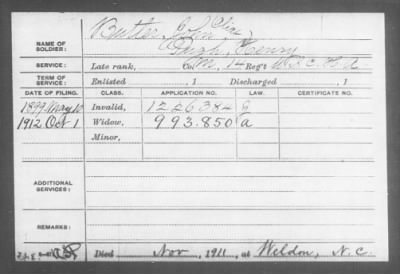 NAME OF SOLDIER: Butler, John, Alias
Pugh, Henry
SERVICE: Late rank, Co. M, 14 Reg't U.S.C.H.A.
TERM OF SERVICE: Enlisted , 1 Discharged , 1
DATE OF FILING. CLASS. APPLICATION NO. LAW. CERTIFICATE NO.
1899 May Invalid, 1226382 G
1912 Oct 1 Widow, 993.850 a
Minor,
ADDITIONAL SERVICES:
REMARKS:
Died Nov, 1911, at Weldon, N.C.